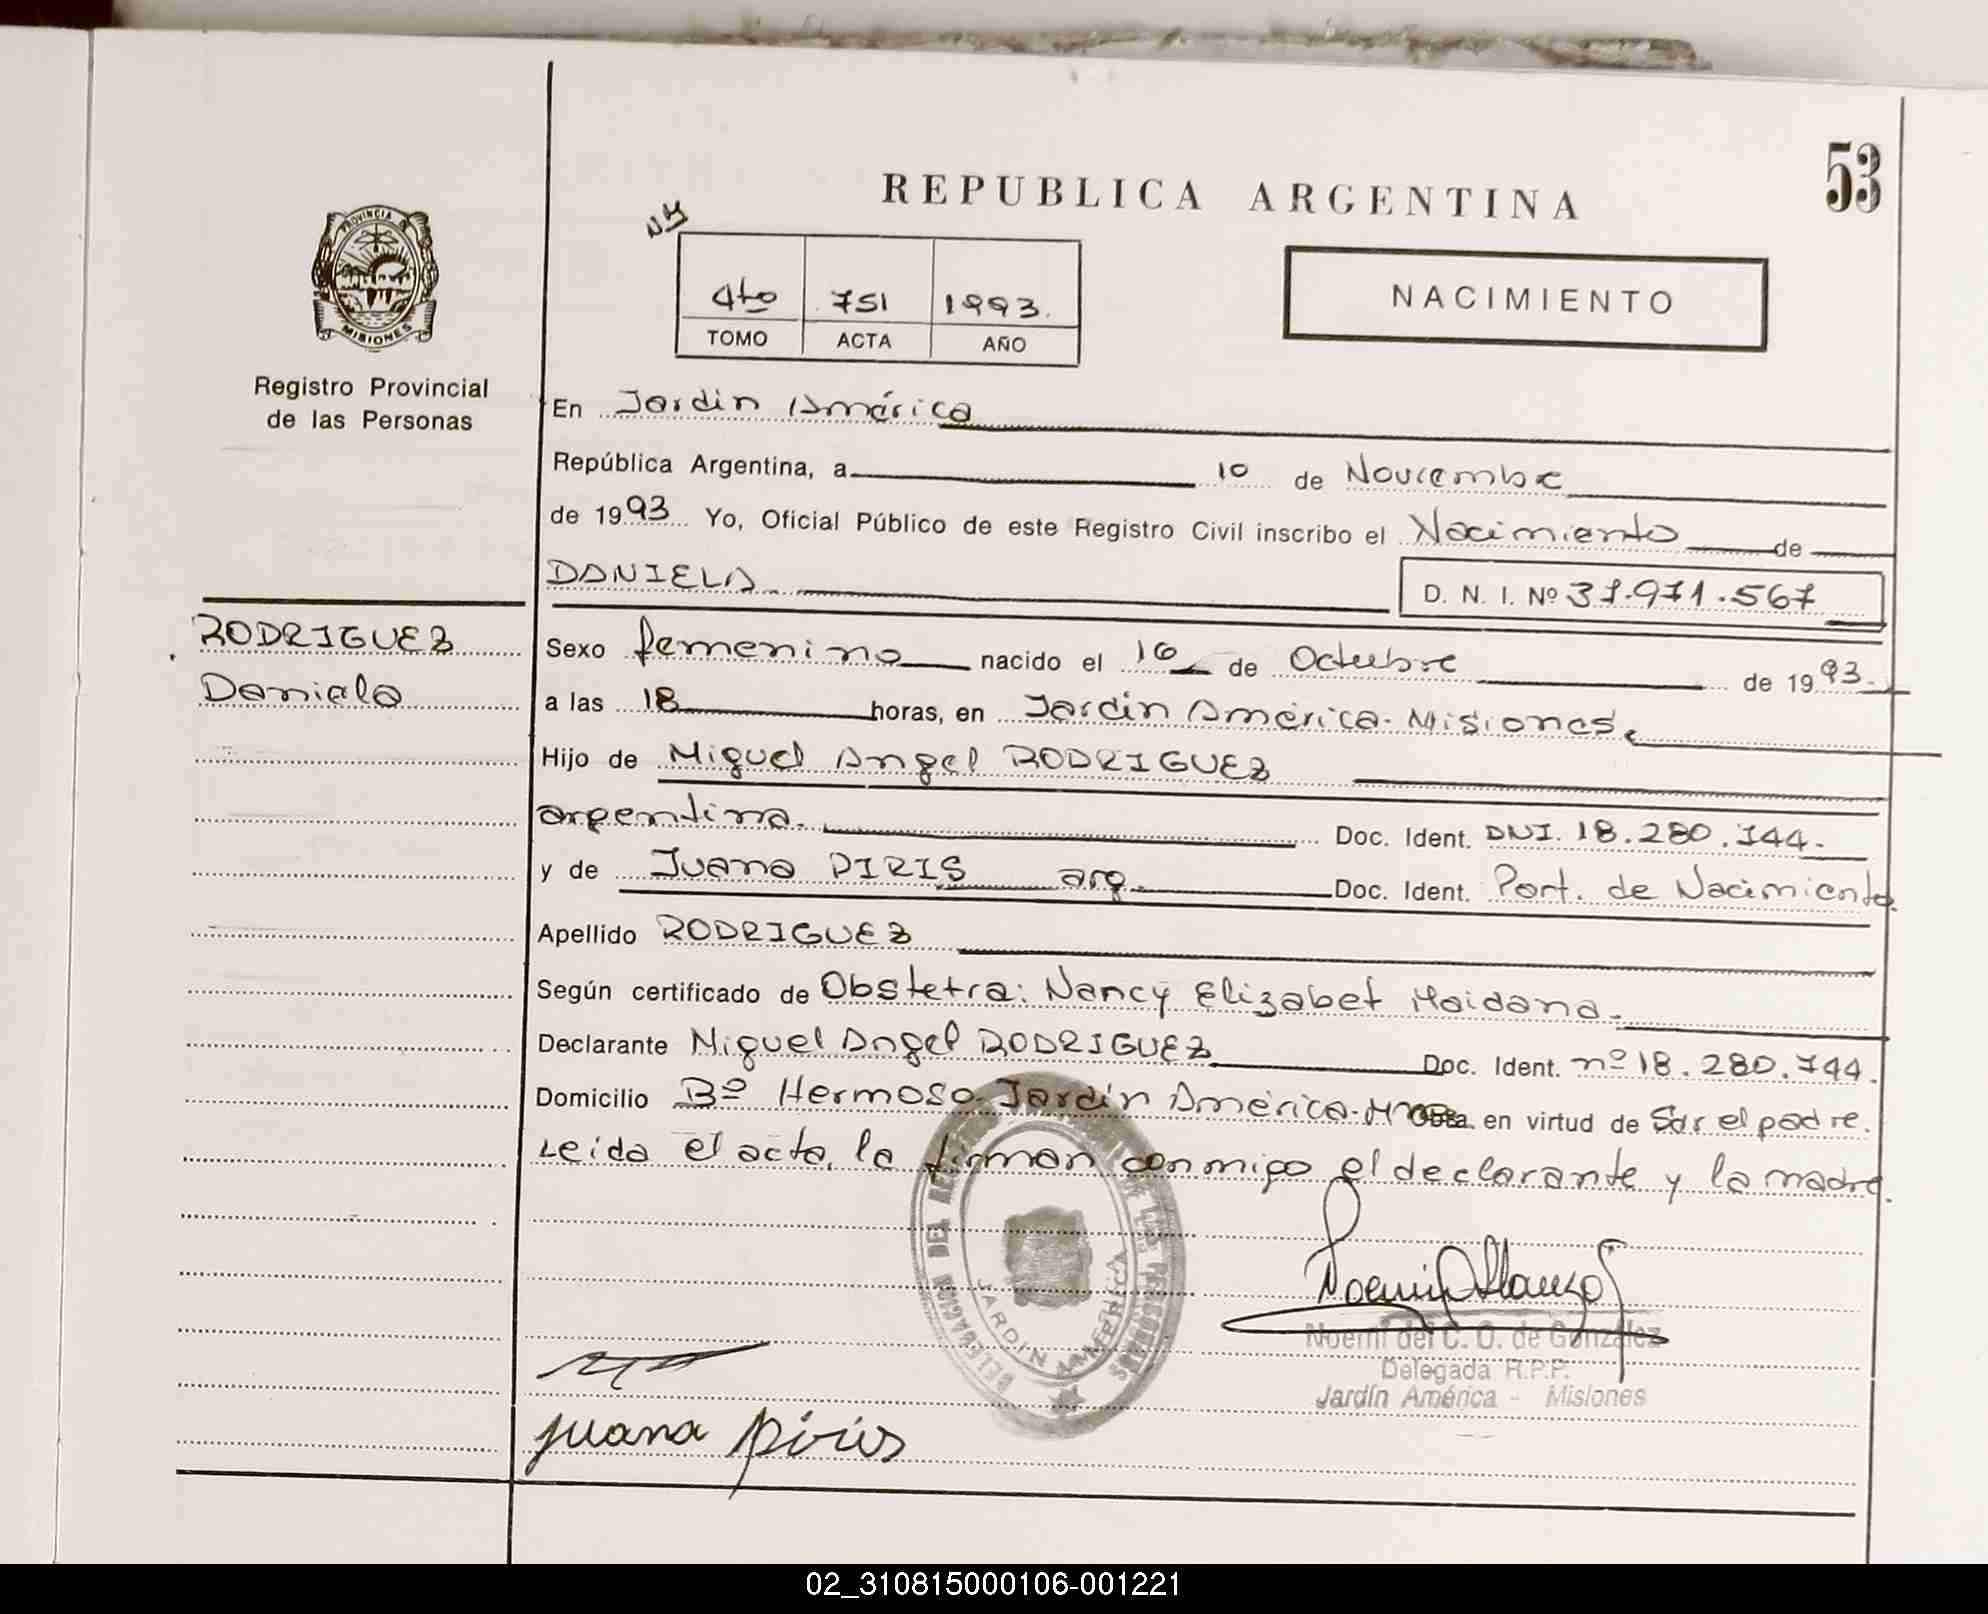 53
REPUBLICA ARGENTINA
NACIMIENTO
4to 751 1993.
TOMO ACTA AÑO
PROVINCIA DE
MISIONES
Registro Provincial
de las Personas
En Jardin América
República Argentina, a 10 de Noviembre
de 1993 Yo, Oficial Público de este Registro Civil inscribo el Nacimiento de
DANIELA D. N. I. Nº 37.971.567
RODRIGUEZ
Daniela
Sexo femenino nacido el 16 de Octubre de 1993.
a las 18 horas, en Jardin América - Misiones.
Hijo de Miguel Angel RODRIGUEZ
argentina. Doc. Ident. DNI. 18.280.744.-
y de Juana PIRIS arg. Doc. Ident. Part. de Nacimiento.
Apellido RODRIGUEZ
Según certificado de Obstetra: Nancy Elizabet Maidana.
Declarante Miguel Angel RODRIGUEZ Doc. Ident. nº 18.280.744.
Domicilio Bº Hermoso Jardín América - en virtud de Ser el padre.
Leida el acta, la firman conmigo el declarante y la madre.
JARDIN AMERICA
Noemí del C. O. de González
Delegada R.P.P.
Jardín América - Misiones
Juana Piris
02_310815000106-001221